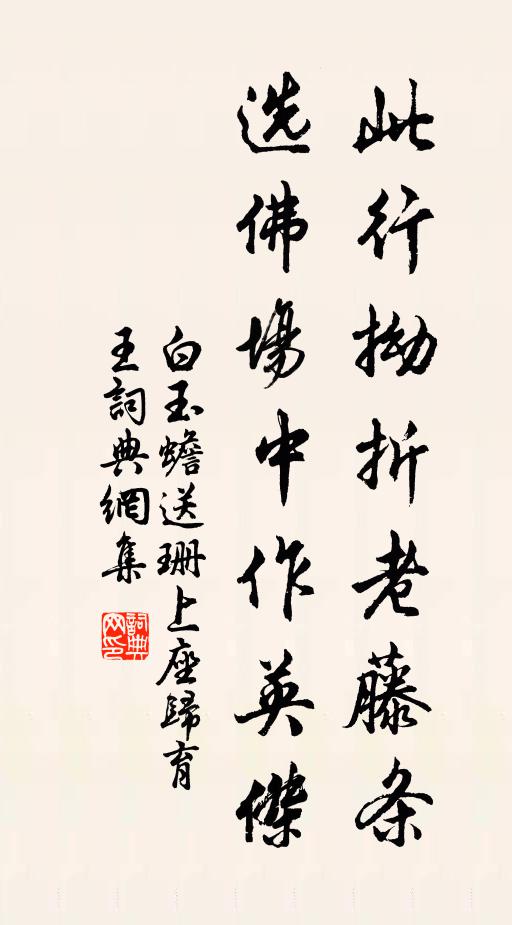 此行拗折老藤条
选佛場中作英傑
白玉蟾送珊上座歸育
王詞典網集
詞典网印